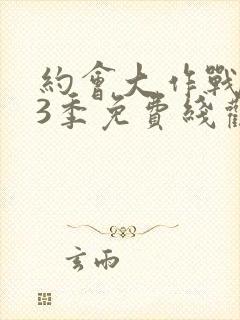 約會大作戰
3季免費綫觀
玄雨